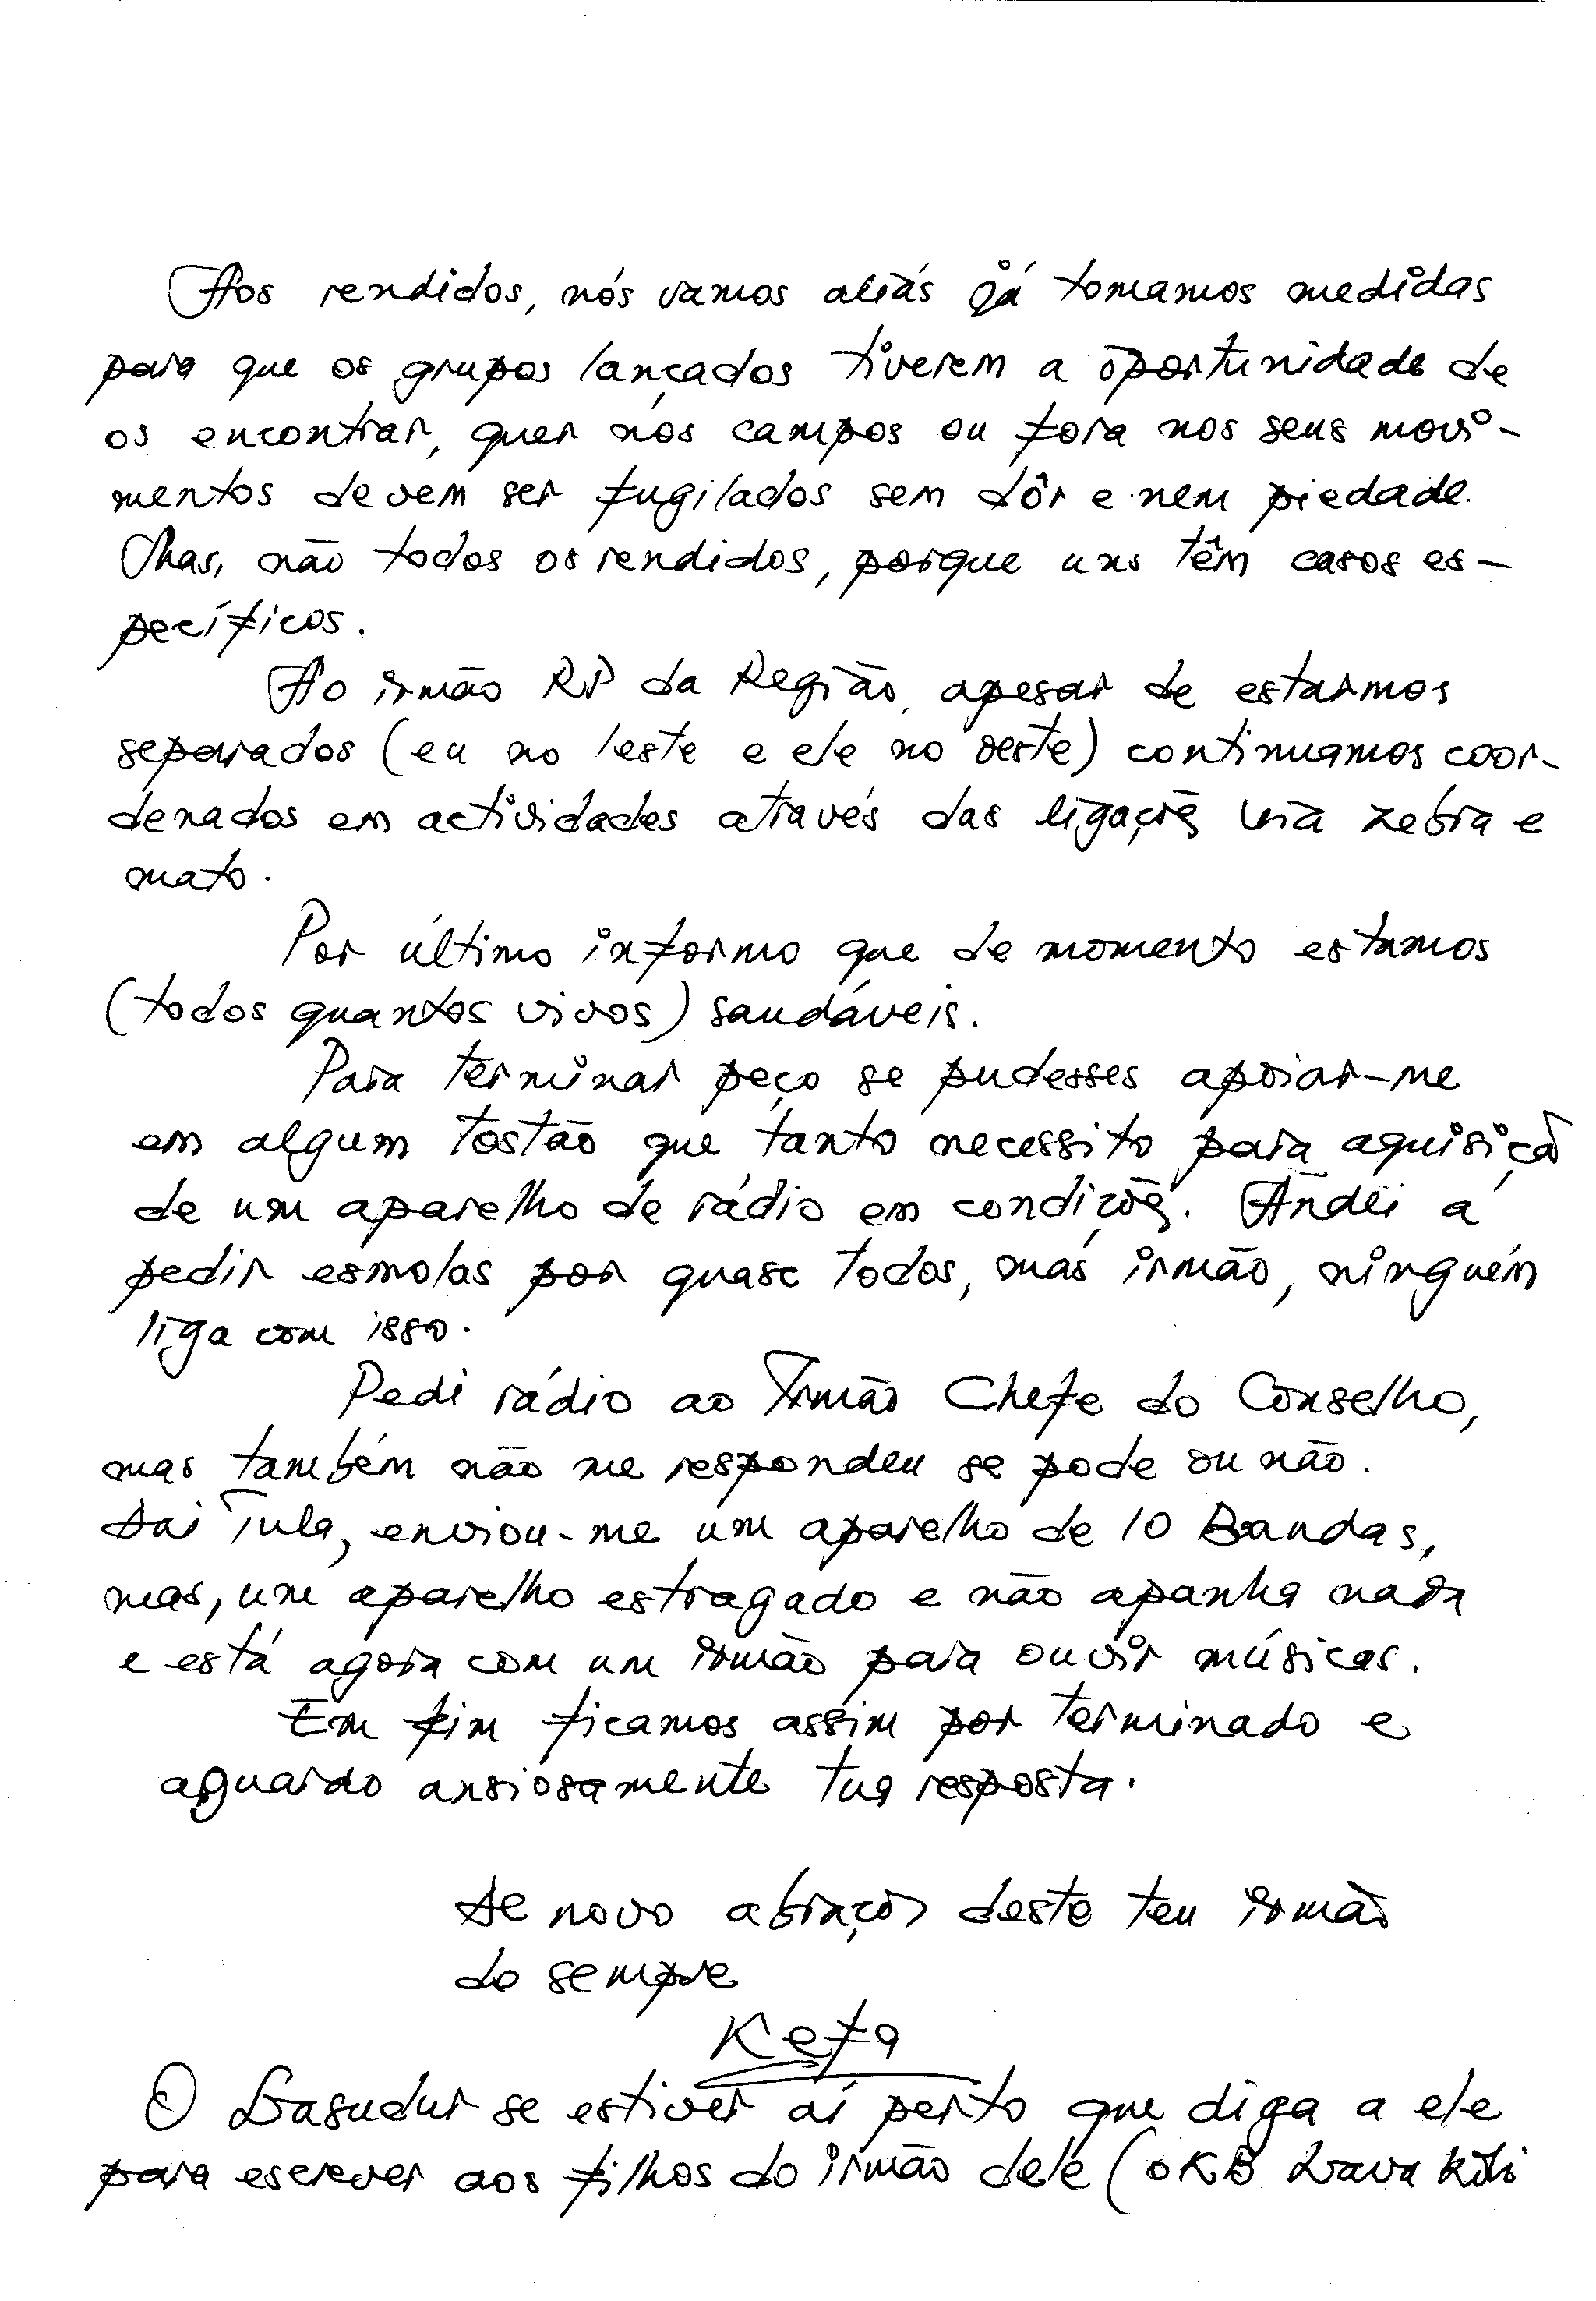 Aos rendidos, nós vamos aliás já tomamos medidas
para que os grupos lançados tiverem a oportunidade de
os encontrar, quer nos campos ou fora nos seus movi-
mentos devem ser fugilados sem dôr e nem piedade.
Mas, não todos os rendidos, porque uns têm casos es-
pecíficos.
Ao irmão RP da Região, apesar de estarmos
separados (eu no leste e ele no oeste) continuamos coor-
denados em actividades através das ligaçõe via zebra e
mato.
Por último informo que de momento estamos
(todos quantos vivos) saudáveis.
Para terminar peço se pudesses apoiar-me
em algum tostão que tanto necessito para aquisiçã
de um aparelho de rádio em condições. Andei a
pedir esmolas por quase todos, mas irmão, ninguém
liga com isso.
Pedi rádio ao Irmão Chefe do Conselho,
mas também não me respondeu se pode ou não.
Dai Tula, enviou-me um aparelho de 10 Bandas,
mas, um aparelho estragado e não apanha nada
e está agora com um irmão para ouvir músicas.
Em fim ficamos assim por terminado e
aguardo ansiosamente tua resposta.
De novo abraços deste teu irmão
de sempre
Kefa
O Lasudur se estiver aí perto que diga a ele
para escrever aos filhos do irmão dele (o KB Lava